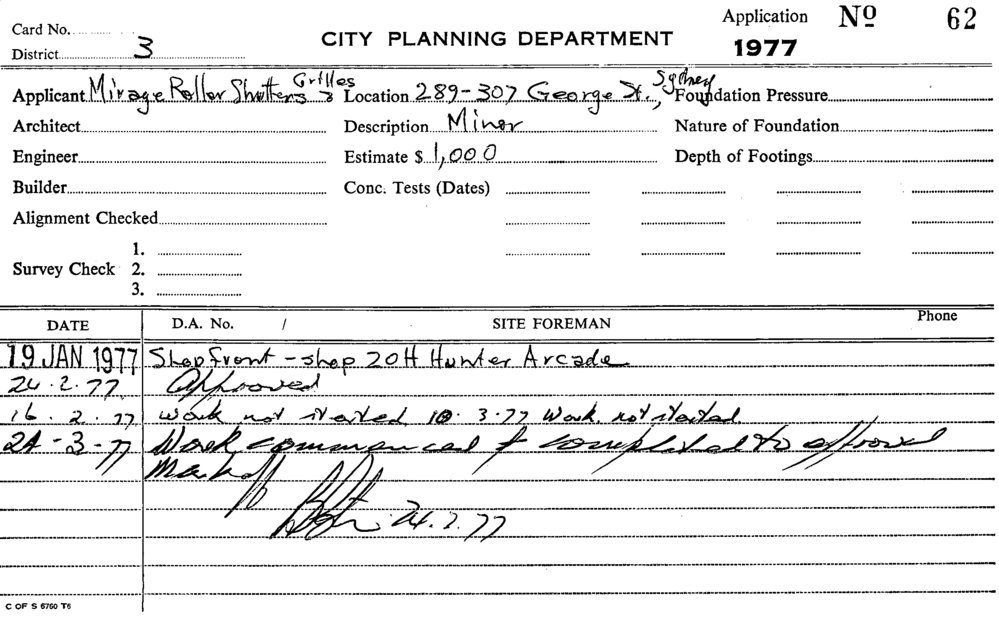 Card No.
District 3
CITY PLANNING DEPARTMENT
Application Nº 62
1977
Applicant Mirage Roller Shutters & Grilles Location 289-307 George St., Sydney Foundation Pressure
Architect Description Minor Nature of Foundation
Engineer Estimate $ 1,000 Depth of Footings
Builder Conc. Tests (Dates)
Alignment Checked
Survey Check 1.
2.
3.
DATE D.A. No. / SITE FOREMAN Phone
19 JAN 1977 Shopfront - shop 20H Hunter Arcade
24.2.77 Approved
16.2.77 Work not started 10.3.77 Work not started
24-3-77 Work commenced & completed to approval
Mark off
24.3.77
C OF S 6760 T6